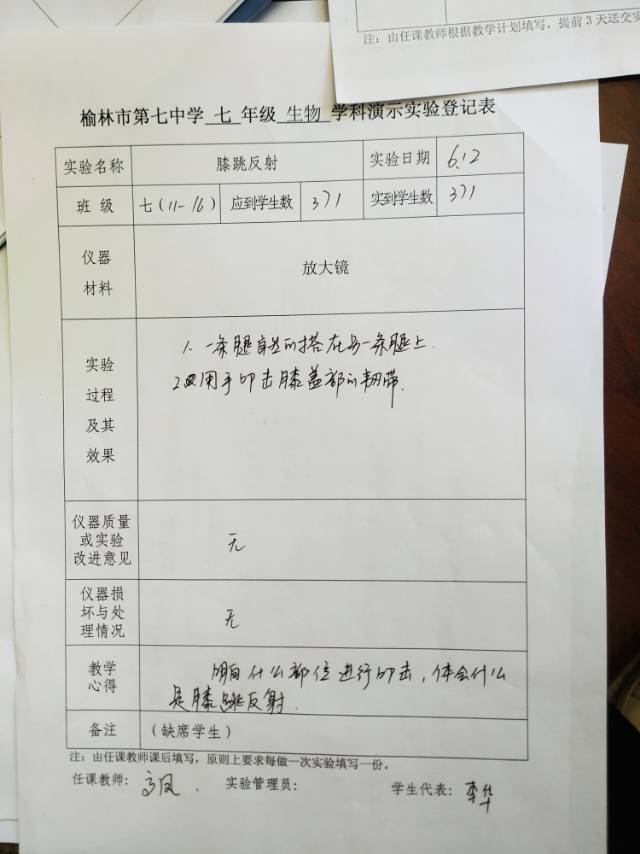 注：由任课教师根据教学计划填写，提前3天送交实
榆林市第七中学 七 年级 生物 学科演示实验登记表
实验名称 膝跳反射 实验日期 6.12
班 级 七(11-16) 应到学生数 371 实到学生数 371
仪器
材料
放大镜
实验
过程
及其
效果
1. 一条腿自然的搭在另一条腿上.
2. 用手叩击膝盖部的韧带.
仪器质量
或实验
改进意见
无
仪器损
坏与处
理情况
无
教学
心得
明白什么部位进行叩击，体会什么
是膝跳反射.
备注 (缺席学生)
注：由任课教师课后填写，原则上要求每做一次实验填写一份。
任课教师： 高凤 实验管理员： 学生代表： 李华